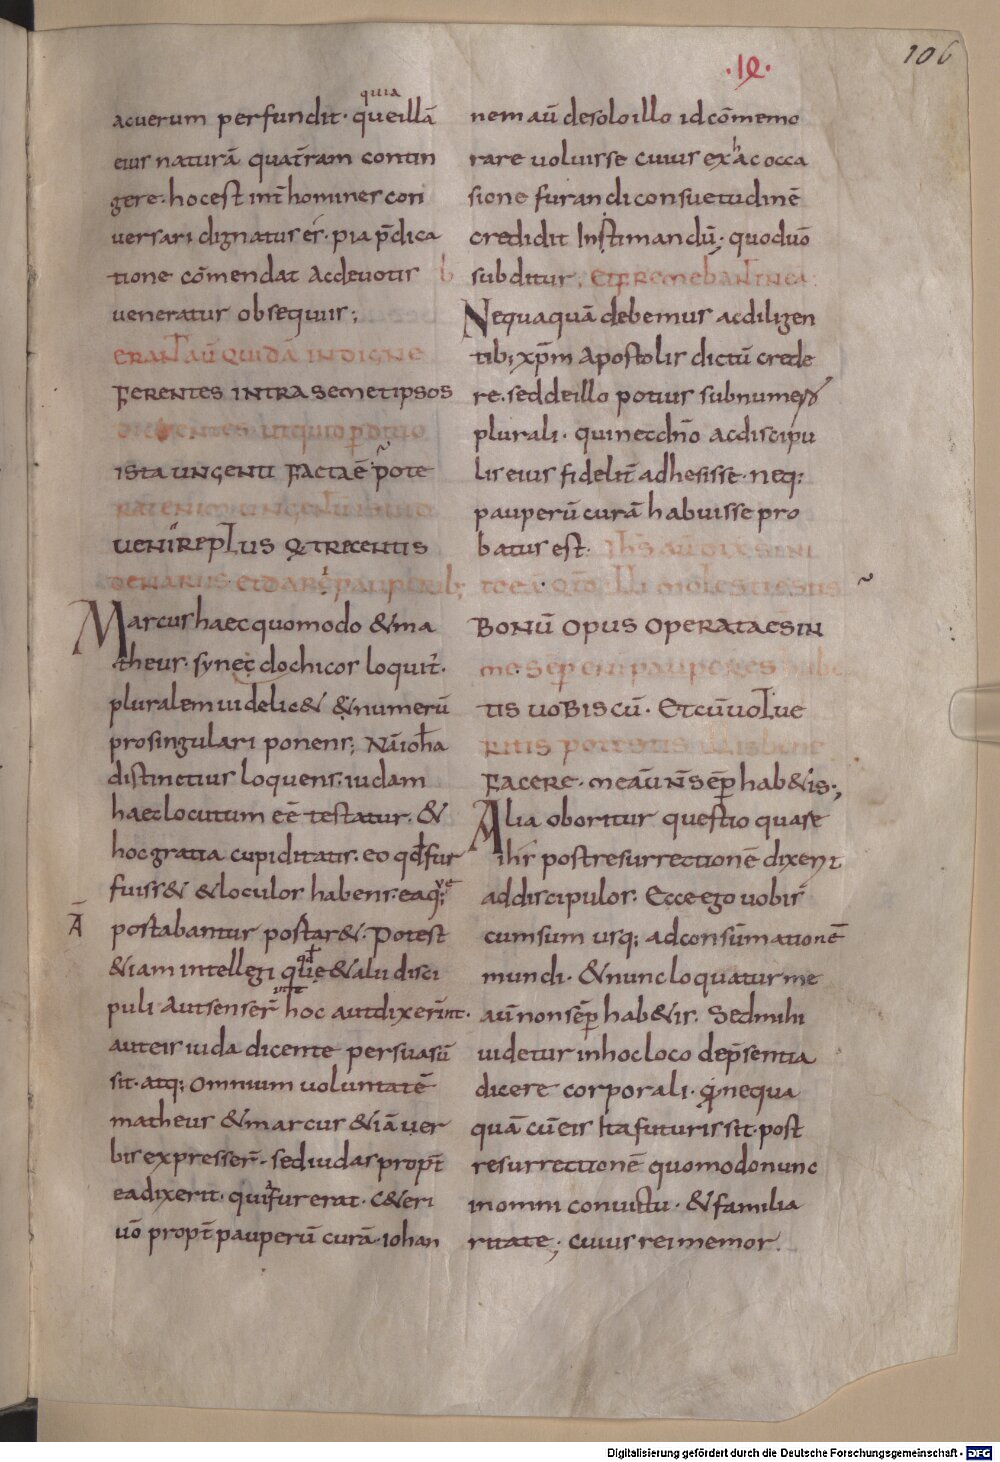 106
·ιę·
quia
acuerum perfundit· queillā
eius naturā quat̄ram contin
gere· hocest int̄ homines con
uersari dignatus es̄· pia p̄dica
tione cōmendat acdeuotis
ueneratur obsequiis;
ERANT AŪ QUIDĀ INDIGNE
FERENTES INTRA SEMETIPSOS
ISTA UNGENTI FACTA Ē POTE
UENIRE PLUS QĀ TRECENTIS
DENARIIS ET DARE PAUPERIB;
Marcus haec quomodo &ma
theus· synecdochicos loquit̄·
pluralem uidelic& &numerū
prosingulari ponens; Nā ioha
distinctius loquens· iudam
haec locutum eē testatur· &
hoc gratia cupiditatis· eo qd fur
fuiss& &loculos habens· eaq;
Ā
postabantur postar&· Potest
&iam intellegi &alii disci
puli aut senser̄ hoc aut dixer̄int·
aut eis iuda dicente persuasū
sit· atq; omnium uoluntatē
matheus &marcus &iā uer
bis expresser̄· sed iudas propt̄
ea dixerit· quia fur erat· c&eri
uō propt̄ pauperū curā· iohan
nem aū de solo illo id cōmemo
rare uoluisse cuius ex hac occa
sione furandi consuetudinē
credidit Instimandū; quod uō
subditur; ET FREMEBANT IN EĀ
Nequaquā debemus ac diligen
tib; xp̄m apostolis dictū crede
re· sed de illo potius sub numero
plurali· qui nec dn̄o ac discipu
lis eius fidelit̄ adhesisse· neq;
pauperū curā habuisse pro
batus est· IHS AŪ DIXIT SINI
TE EĀ QĪD ILLI MOLESTI ESTIS
BONŪ OPUS OPERATA ES IN
ME· SEP̄ ENI PAUPERES HABE
TIS UOBISCŪ· ET CŪ UOLUE
RITIS POTESTIS ILLIS BENE
FACERE· ME AŪ N̄ SEP̄ hab&is·;
Alia oboritur questio quare
ihs̄ post resurrectionē dixerit
ad discipulos· Ecce ego uobis
cum sum usq; ad consūmationē
mundi· &nunc loquatur me
aū non sēp hab&is· Sed mihi
uidetur in hoc loco de p̄sentia
dicere corporali· qd nequa
quā cū eis Ita futurus sit post
resurrectionē quomodo nunc
in omni conuictu· &familia
ritate; cuius rei memor
Digitalisierung gefördert durch die Deutsche Forschungsgemeinschaft - DFG